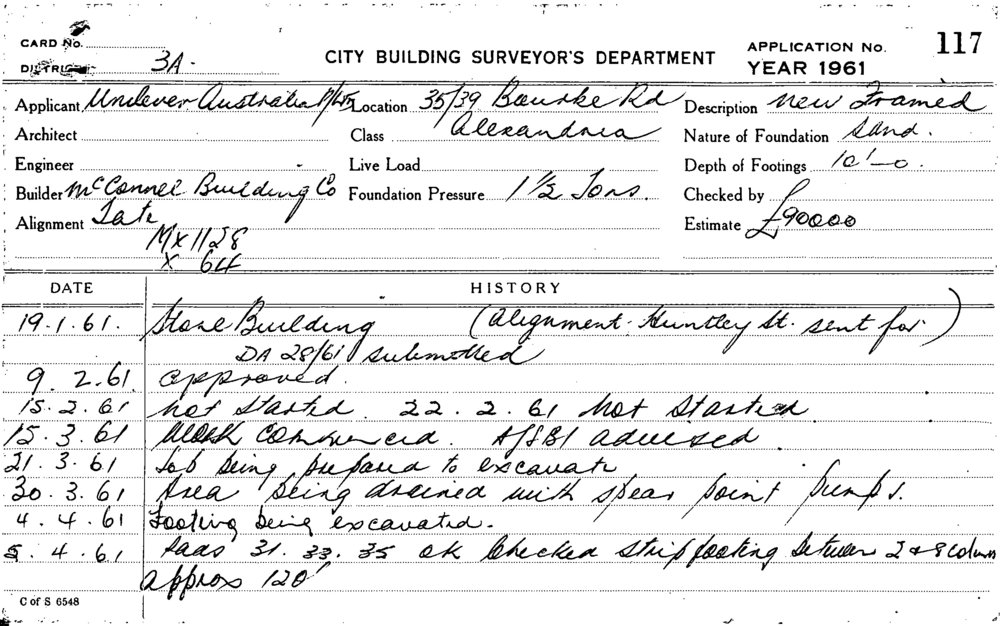 CARD No.
CITY BUILDING SURVEYOR'S DEPARTMENT
APPLICATION No. 117
DISTRICT 3A.
YEAR 1961
Applicant Unilever Australia P/L Location 35/39 Bourke Rd Description New Framed
Architect Class Alexandria Nature of Foundation Sand.
Engineer Live Load Depth of Footings 10'-0.
Builder McConnel Building Co Foundation Pressure 1½ Tons. Checked by
Alignment Estimate £90000
Mx 1128
x 64
DATE HISTORY
19.1.61. Store Building (Alignment-Huntley St. sent for)
DA 28/61 submitted
9.2.61. approved.
15.2.61 Not started. 22.2.61 Not started
15.3.61 Work commenced. advised.
21.3.61 Job being prepared to excavate
30.3.61 Area being drained with spear point pumps.
4.4.61 Footing being excavated.
5.4.61 Pads 31. 33. 35 ok Checked strip footing between 2 & 8 column
approx 120'
C of S 6548